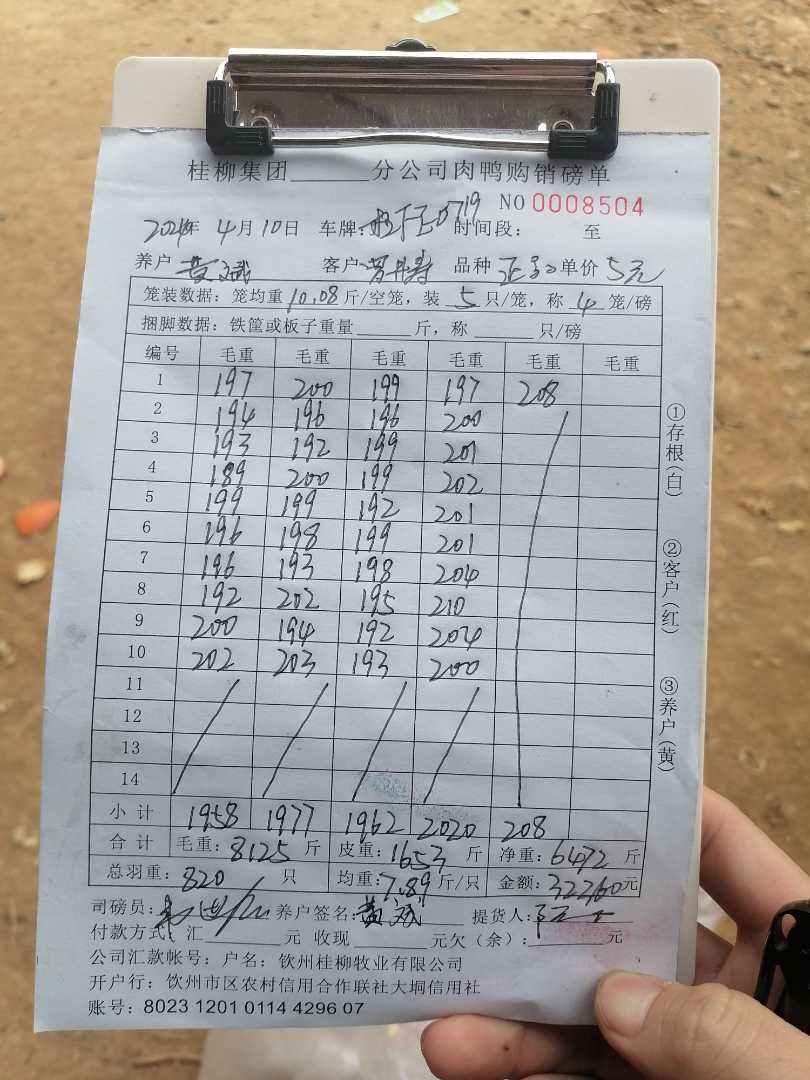 桂柳集团______分公司肉鸭购销磅单
NO 0008504
2024年 4月10日 车牌: 0719 时间段: 至
养户 黄斌 客户 品种 单价 5元
笼装数据: 笼均重 10.08 斤/空笼, 装 5 只/笼, 称 4 笼/磅
捆脚数据: 铁筐或板子重量______斤, 称______只/磅
编号 毛重 毛重 毛重 毛重 毛重 毛重
1 197 200 199 197 208
2 194 196 196 200
3 193 192 199 201
4 189 200 199 202
5 199 199 192 201
6 196 198 199 201
7 196 193 198 204
8 192 202 195 210
9 200 194 192 204
10 202 203 193 200
11
12
13
14
小计 1958 1977 1962 2020 208
合计 毛重: 8125 斤 皮重: 1653 斤 净重: 6472 斤
总羽重: 820 只 均重: 7.89 斤/只 金额: 32360 元
司磅员: 养户签名: 黄斌 提货人:
付款方式: 汇______元 收现______元欠(余): ______元
公司汇款帐号: 户名: 钦州桂柳牧业有限公司
开户行: 钦州市区农村信用合作联社大垌信用社
账号: 8023 1201 0114 4296 07
①存根(白)
②客户(红)
③养户(黄)